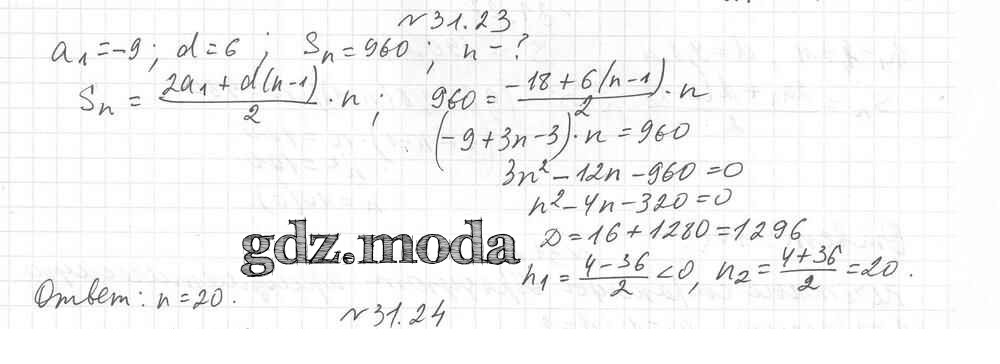 №31.23
a₁=-9; d=6; Sₙ=960; n-?
Sₙ = (2a₁+d(n-1))/2 · n; 960 = (-18+6(n-1))/2 · n
(-9+3n-3)·n=960
3n²-12n-960=0
n²-4n-320=0
gdz.moda
D=16+1280=1296
n₁=(4-36)/2<0, n₂=(4+36)/2=20.
Ответ: n=20.
№31.24